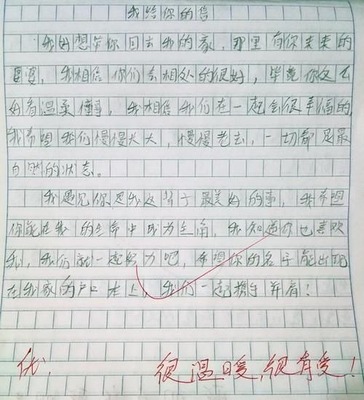 我给你的信
我好想带你回去我的家，那里有你未来的
婆婆，我相信你们会相处的很好，毕竟你这么
的有温柔懂事，我相信我们在一起会很幸福的
我希望我们慢慢长大，慢慢老去，一切都是最
自然的状态。
我遇见你是我这辈子最美好的事，我希望
你能在我的生命中成为主角，我知道你也喜欢
我，我们就一起努力吧，我想你的名字能出现
在我家的户口本上，我们一起携手并肩！
优， 很温暖，很有爱！